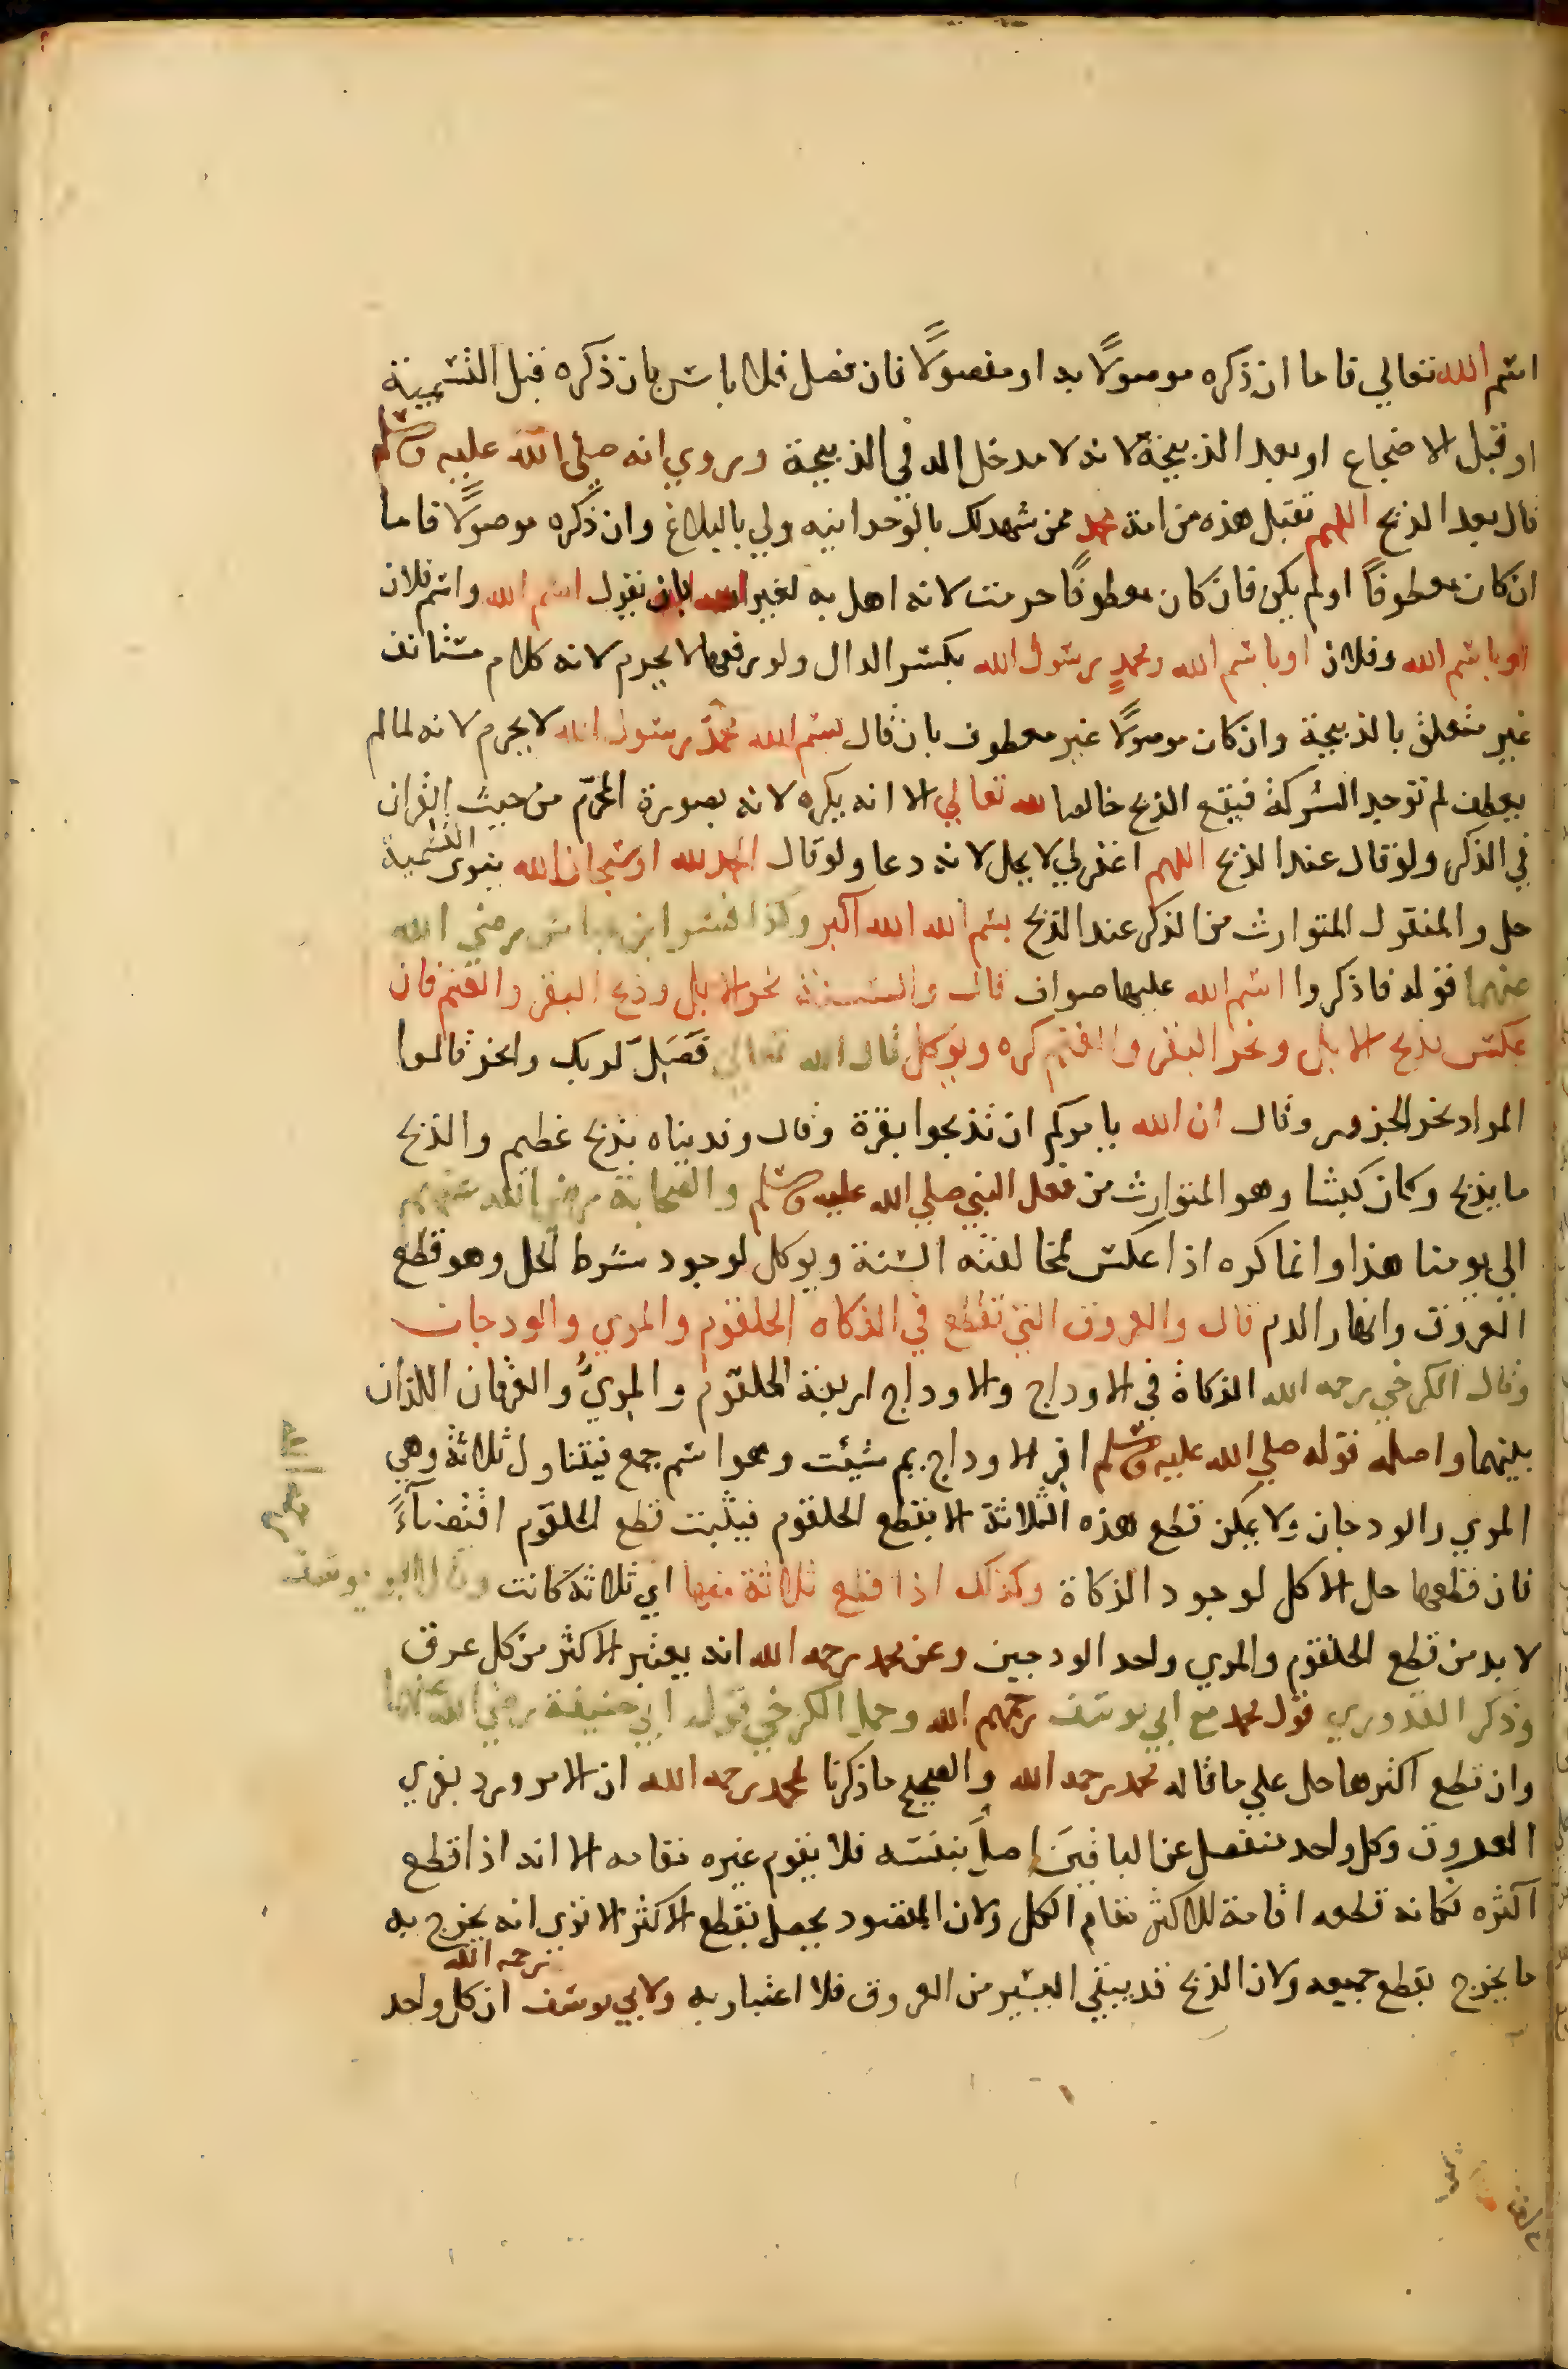 اسم الله تعالي فاما ان ذكره موصولًا به او مفصولًا فان فصل فلا باس بان ذكره قبل التسمية
او قبل الاضجاع او بعد الذبيحة لانه لا مدخل له في الذبيحة وروي انه صلي الله عليه وسلم
قال بعد الذبح اللهم تقبل هذه من امة محمد ممن شهد لك بالوحدانيه ولي بالبلاغ وان ذكره موصولًا فاما
ان كان معطوفًا او لم يكن فان كان معطوفًا حرمت لانه اهل به لغير الله بان يقول اسم الله واسم فلان
او باسم الله وفلان او باسم الله ومحمدٍ رسول الله بكسر الدال ولو رفعها لا يحرم لانه كلام مستانف
غير متعلق بالذبيحة وان كان موصولًا غير معطوف بان قال بسم الله محمدٌ رسول الله لا يحرم لانه لما لم
يعطف لم توجد الشركة فيقع الذبح خالصا لله تعالي الا انه يكره لانه بصورة المحرّم من حيث القران
في الذكر ولو قال عند الذبح اللهم اغفر لي لا يحل لانه دعا ولو قال الحمد لله او سبحان الله ينوي التسمية
حل والمنقول المتوارث من الذكر عند الذبح بسم الله الله اكبر وكذا فسر ابن عباس رضي الله
عنهما قوله فاذكروا اسم الله عليها صواف قال والسنة نحر الابل وذبح البقر والغنم فان
عكس بذبح الابل ونحر البقر والغنم كره ويوكل قال الله تعالي فَصَلِّ لربك وانحر قالوا
المراد نحر الجزور وقال ان الله يامركم ان تذبحوا بقرة وقال وفديناه بذبح عظيم والذبح
ما يذبح وكان كبشا وهو المتوارث من فعل النبي صلي الله عليه وسلم والصحابة رضي الله عنهم
الي يومنا هذا وانما كره اذا عكس لمخالفته السنة ويوكل لوجود شرط الحل وهو قطع
العروق وانهار الدم قال والعروق التي تقطع في الذكاه الحلقوم والمري والودجان
وقال الكرخي رحمه الله الذكاة في الاوداج والاوداج اربعة الحلقوم والمريُّ والعرقان اللذان
بينهما واصله قوله صلي الله عليه وسلم افر الاوداج بم شيئت وهو اسم جمع فيتناول ثلاثة وهي
المري والودجان ولا يمكن قطع هذه الثلاثة الا بقطع الحلقوم فيثبت قطع الحلقوم اقتضاءً
فان قطعها حل الاكل لوجود الذكاة وكذلك اذا قطع ثلاثة منها اي ثلاثة كانت وقال ابو يوسف
لا بد من قطع الحلقوم والمري واحد الودجين وعن محمد رحمه الله انه يعتبر الاكثر من كل عرق
وذكر القدوري قول محمد مع ابي يوسف رحمهم الله وحمل الكرخي قول ابي حنيفة رضي الله عنهما
وان قطع اكثرها حل علي ما قاله محمد رحمه الله والصحيح ما ذكرنا لمحمد رحمه الله ان الامر ورد بفري
العروق وكل واحد منفصل عن الباقين اصل بنفسه فلا يقوم غيره مقامه الا انه اذا قطع
اكثره فكانه قطعه اقامة للاكثر مقام الكل ولان المقصود يحصل بقطع الاكثر الا تري انه يخرج به
ما يخرج بقطع جميعه ولان الذبح قد يبقي اليسير من العروق فلا اعتبار به ولابي يوسف رحمه الله ان كل واحد